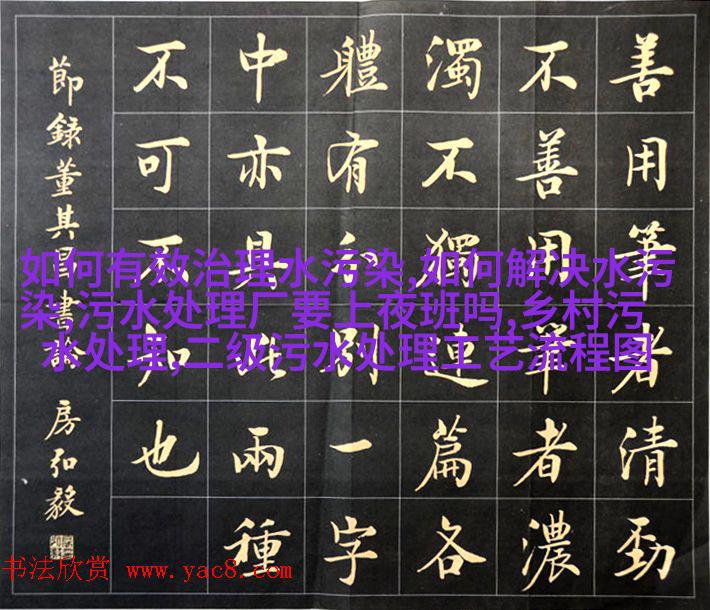 善用筆者清勁
不善用筆者濃
濁不獨連篇各
體有分別一字
中亦具此兩種
不可不知也
節錄董其昌書論 房弘毅
如何有效治理水污染,如何解决水污
染,污水处理厂要上夜班吗,乡村污
水处理,二级污水处理工艺流程图
书法欣赏 www.yac8.com